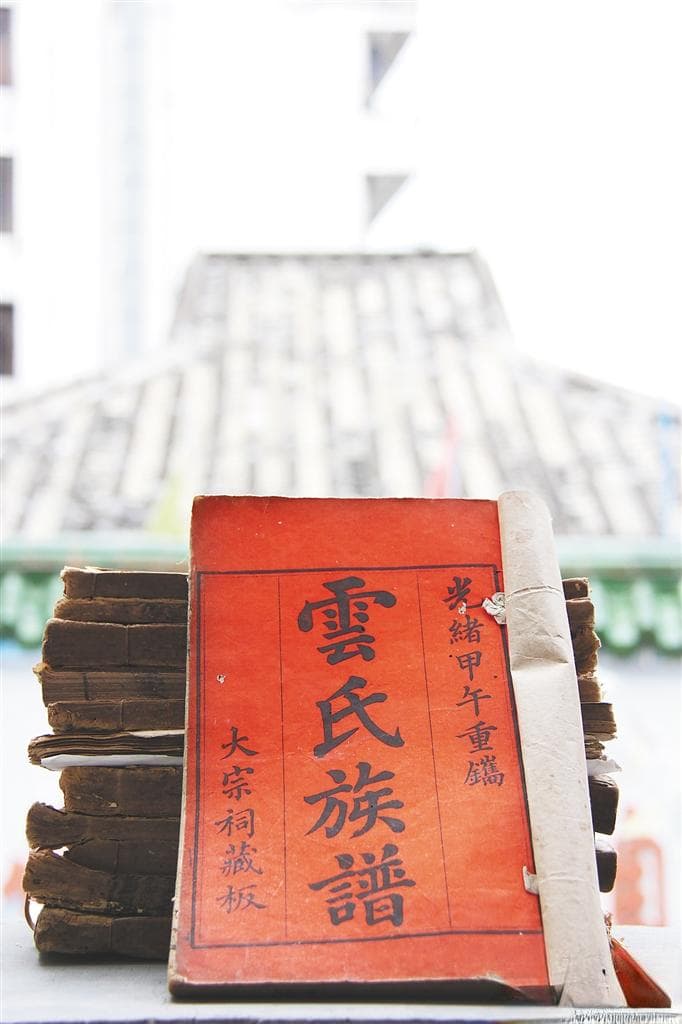 光緒甲午重鐫
雲氏族譜
大宗祠藏板